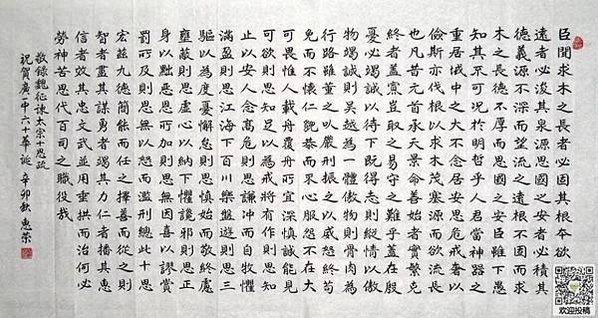 臣聞求木之長者必固其根本欲
遠者必浚其泉源思國之安者必積其
德義源不深而望流之遠根不固而求
木之長德不厚而思國之安臣雖下愚
知其不可況於明哲乎人君當神器之
重居域中之大不念居安思危戒奢以
儉斯亦伐根以求木茂塞源而欲流長
也凡昔元首承天景命善始者實繁克
終者蓋寡豈取之易守之難乎蓋在殷
憂必竭誠以待下既得志則縱情以傲
物竭誠則吳越為一體傲物則骨肉為
行路雖董之以嚴刑振之以威怒終苟
免而不懷仁貌恭而不心服怨不在大
可畏惟人載舟覆舟所宜深慎誠能見
可欲則思知足以為戒將有作則思知
止以安人念高危則思謙沖而自牧懼
滿盈則思江海下百川樂盤遊則思三
驅以為度憂懈怠則思慎始而敬終慮
壅蔽則思虛心以納下懼讒邪則思正
身以黜惡恩所加則思無因喜以謬賞
罰所及則思無以怒而濫刑總此十思
宏茲九德簡能而任之擇善而從之則
智者盡其謀勇者竭其力仁者播其惠
信者效其忠文武並用垂拱而治何必
勞神苦思代百司之職役哉
敬錄魏征諫太宗十思疏
祝賀廣一中六十華誕 辛卯秋 惠榮
欢迎投稿